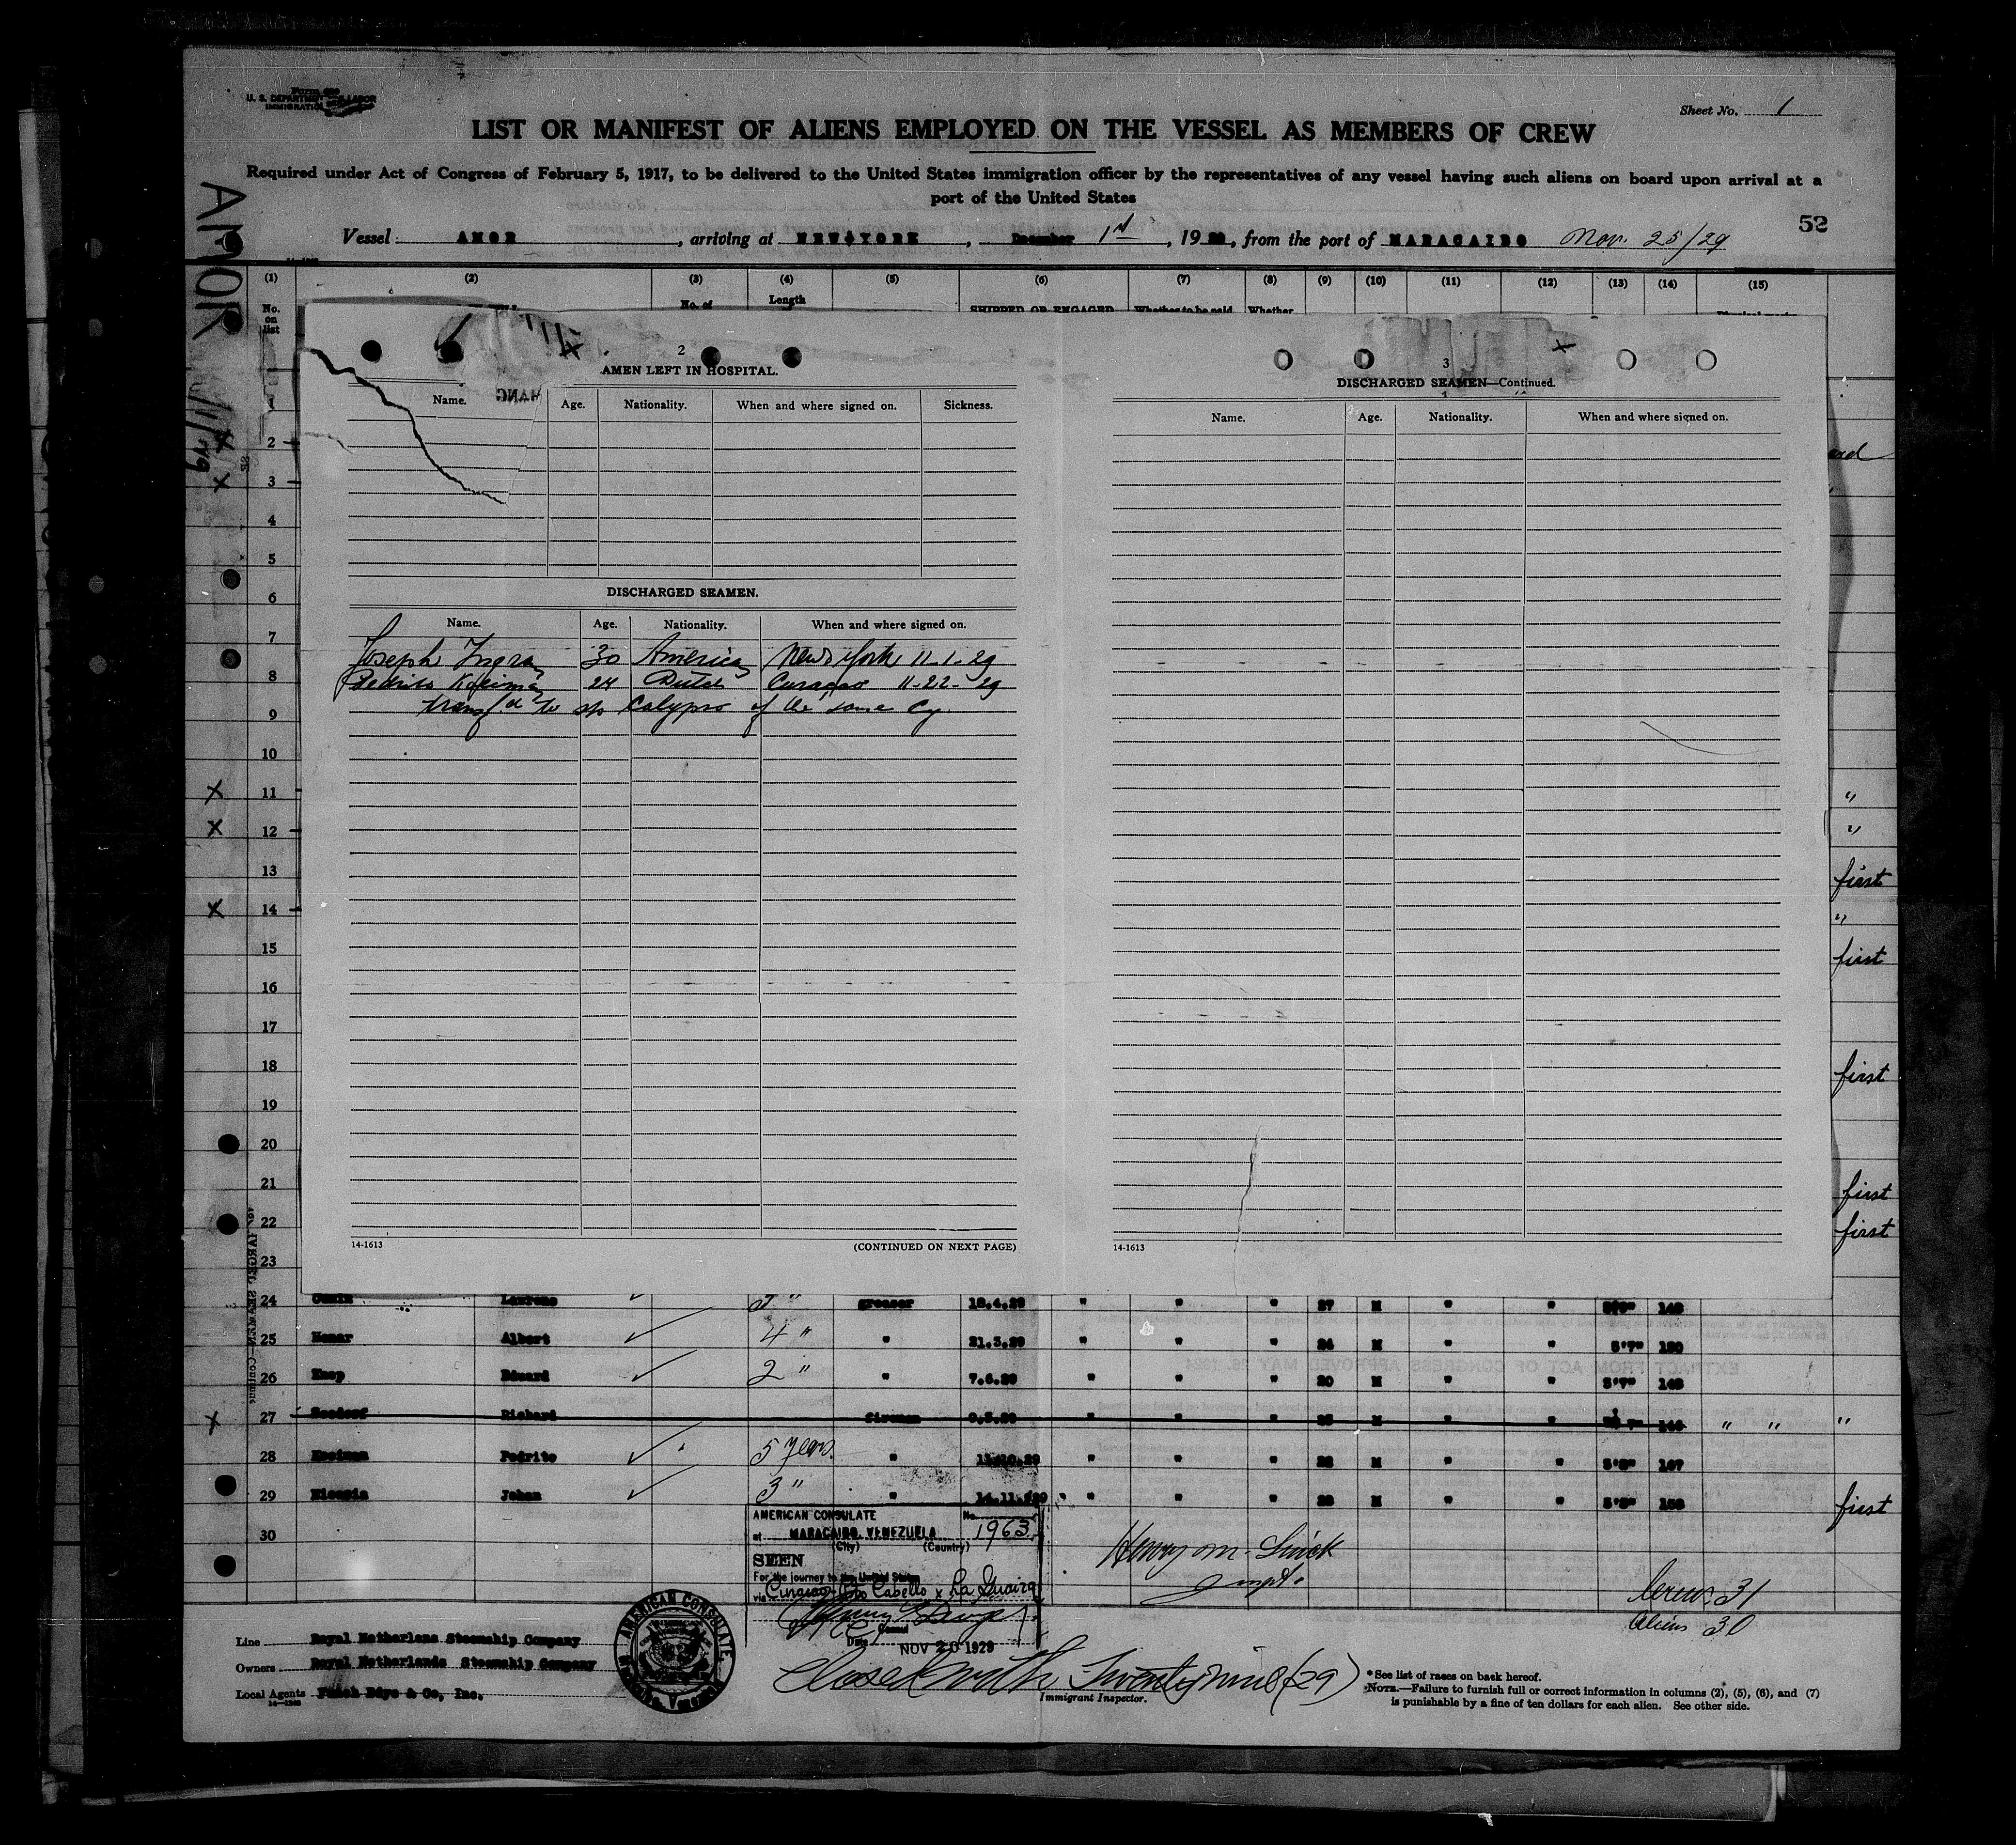 Form 680
U. S. DEPARTMENT OF LABOR
IMMIGRATION
Sheet No. 1
LIST OR MANIFEST OF ALIENS EMPLOYED ON THE VESSEL AS MEMBERS OF CREW
Required under Act of Congress of February 5, 1917, to be delivered to the United States immigration officer by the representatives of any vessel having such aliens on board upon arrival at a
port of the United States
52
Vessel AMOR, arriving at NEW YORK, December 1st, 1929, from the port of MARACAIBO Nov. 25/29
AMOR
(1) (2) (3) (4) (5) (6) (7) (8) (9) (10) (11) (12) (13) (14) (15)
No. on list No. of Length SHIPPED OR ENGAGED Whether to be paid Whether
2
AMEN LEFT IN HOSPITAL.
Name. Age. Nationality. When and where signed on. Sickness.
DISCHARGED SEAMEN.
Name. Age. Nationality. When and where signed on.
Joseph Ingram 30 American New York 11-1-29
Pedrito Koeiman 24 Dutch Curaçao 11-22-29
transf.d to s/s Calypso of the same Cy.
14-1613
(CONTINUED ON NEXT PAGE)
3
DISCHARGED SEAMEN—Continued.
Name. Age. Nationality. When and where signed on.
14-1613
1
2
3
4
5
6
7
8
9
10
11 "
12 "
13 first
14 "
15 first
16
17
18 first
19
20
21 first
22 first
23
24 Lawrens 3 " greaser 18.4.29 " " " 27 M " "
25 Albert 4 " " 21.3.29 " " " 24 M " " 5'7" 150
26 Eduard 2 " " 7.6.29 " " " 20 M " " 5'7"
27 Richard fireman " " " M " " " " "
28 Koeiman Pedrito 5 years " " " " M " " 5'8" 167
29 Johan 3 " " 14.11.29 " " " " M " " 5'8" 158 first
30
AMERICAN CONSULATE No. 1963
at MARACAIBO, VENEZUELA
(City) (Country)
SEEN
For the journey to the United States
via Curaçao Pto Cabello x La Guaira
Consul
Date NOV 20 1929
AMERICAN CONSULATE,
Maracaibo, Venezuela
Henry M.
Inspt.
Crew 31
Aliens 30
Line Royal Netherlans Steamship Company
Owners Royal Netherlands Steamship Company
Local Agents Funch Edye & Co, Inc.
Closed with Twentynine (29)
Immigrant Inspector.
*See list of races on back hereof.
NOTE.—Failure to furnish full or correct information in columns (2), (5), (6), and (7)
is punishable by a fine of ten dollars for each alien. See other side.